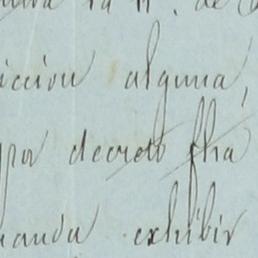 la N. de
iccion alguna,
por decreto fha
manda exhibir